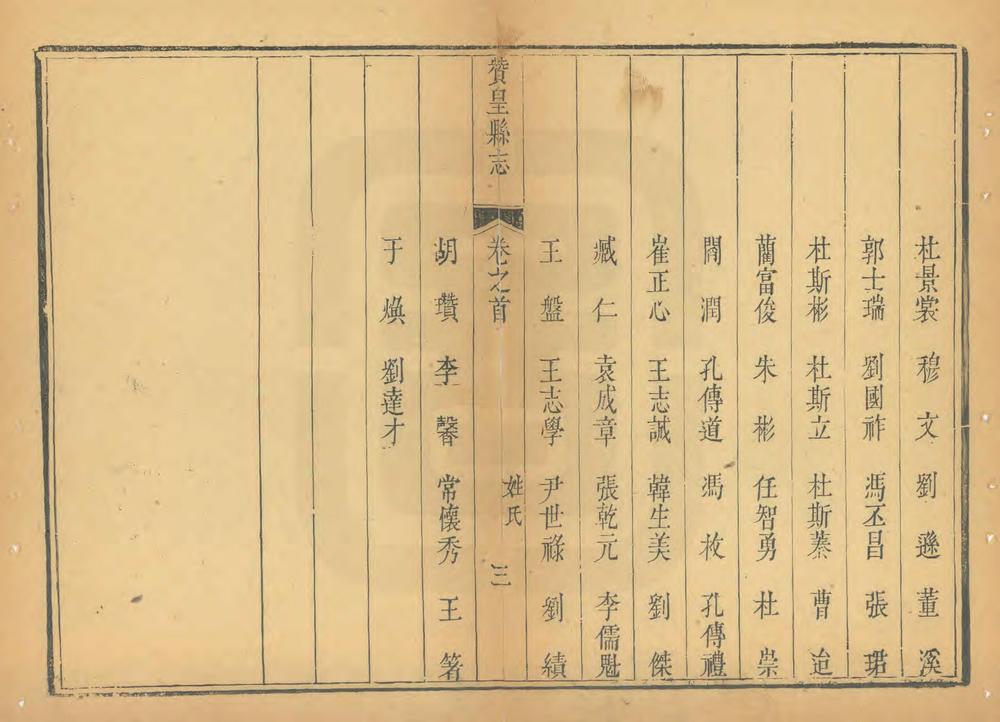 杜景裳 穆文 劉遜 董溪
郭士瑞 劉國祚 馮丕昌 張珺
杜斯彬 杜斯立 杜斯蓁 曹迨
藺富俊 朱彬 任智勇 杜崇
閻潤 孔傳道 馮枚 孔傳禮
崔正心 王志誠 韓生美 劉傑
臧仁 袁成章 張乾元 李儒魁
王盤 王志學 尹世祿 劉績
贊皇縣志 卷之首 姓氏 三
胡瓚 李馨 常懷秀 王箸
于煥 劉達才